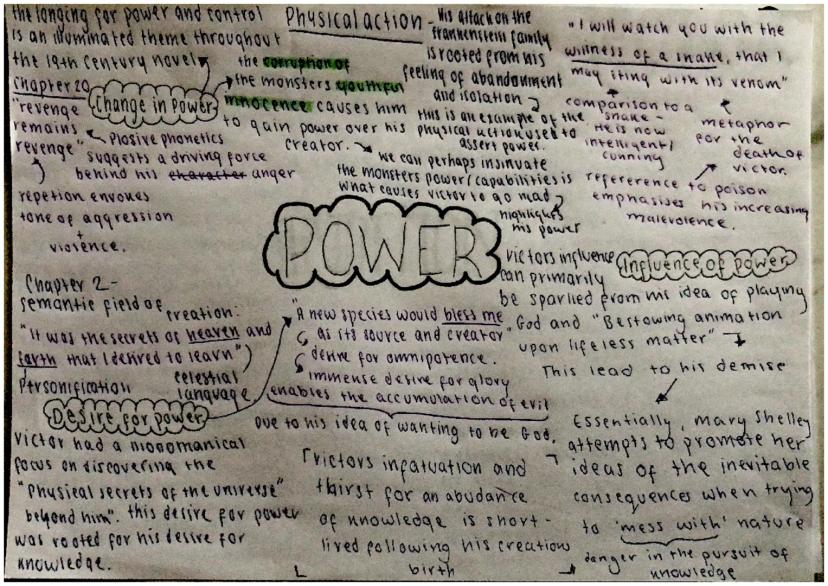 the longing for power and control
is an illuminated theme throughout
the 19th century novel
Chapter 20
Change in Power
"revenge
remains
revenge"
plosive phonetics
suggests a driving force
behind his character anger
repetion envokes
tone of aggression
+
violence.
the corruption of
the monsters youthful
innocence causes him
to gain power over his
creator.
we can perhaps insinuate
the monsters power/capabilities is
what causes victor to go mad
highlights
his power
Physical action
- His attack on the
frankenstein family
is rooted from his
feeling of abandonment
and isolation
this is an example of the
physical action used to
assert power.
"I will watch you with the
wiliness of a snake, that I
may sting with its venom"
comparison to a
'snake -
He is now
intelligent/
cunning
metaphor
for the
death of
victor.
refererence to poison
emphasises his increasing
malevolence.
POWER
Chapter 2-
semantic field of
creation:
"It was the secrets of heaven and
Earth that I desired to learn"
Personification
celestial
language
Desire for power
victor had a monomanical
focus on discovering the
"Physical secrets of the universe"
beyond him". this desire for power
was rooted for his desire for
knowledge.
"A new species would bless me
as its source and creator"
desire for omnipotence.
immense desire for glory
enables the accumulation of evil
Due to his idea of wanting to be God.
victors infatuation and
thirst for an abudance
of knowledge is short-
lived following his creation
birth
Influence of power
victors influence
can primarily
be sparked from his idea of playing
God and "Bestowing animation
upon lifeless matter"
This lead to his demise
Essentially, mary Shelley
attempts to promote her
ideas of the inevitable
consequences when trying
to 'mess with' nature
danger in the pursuit of
knowledge